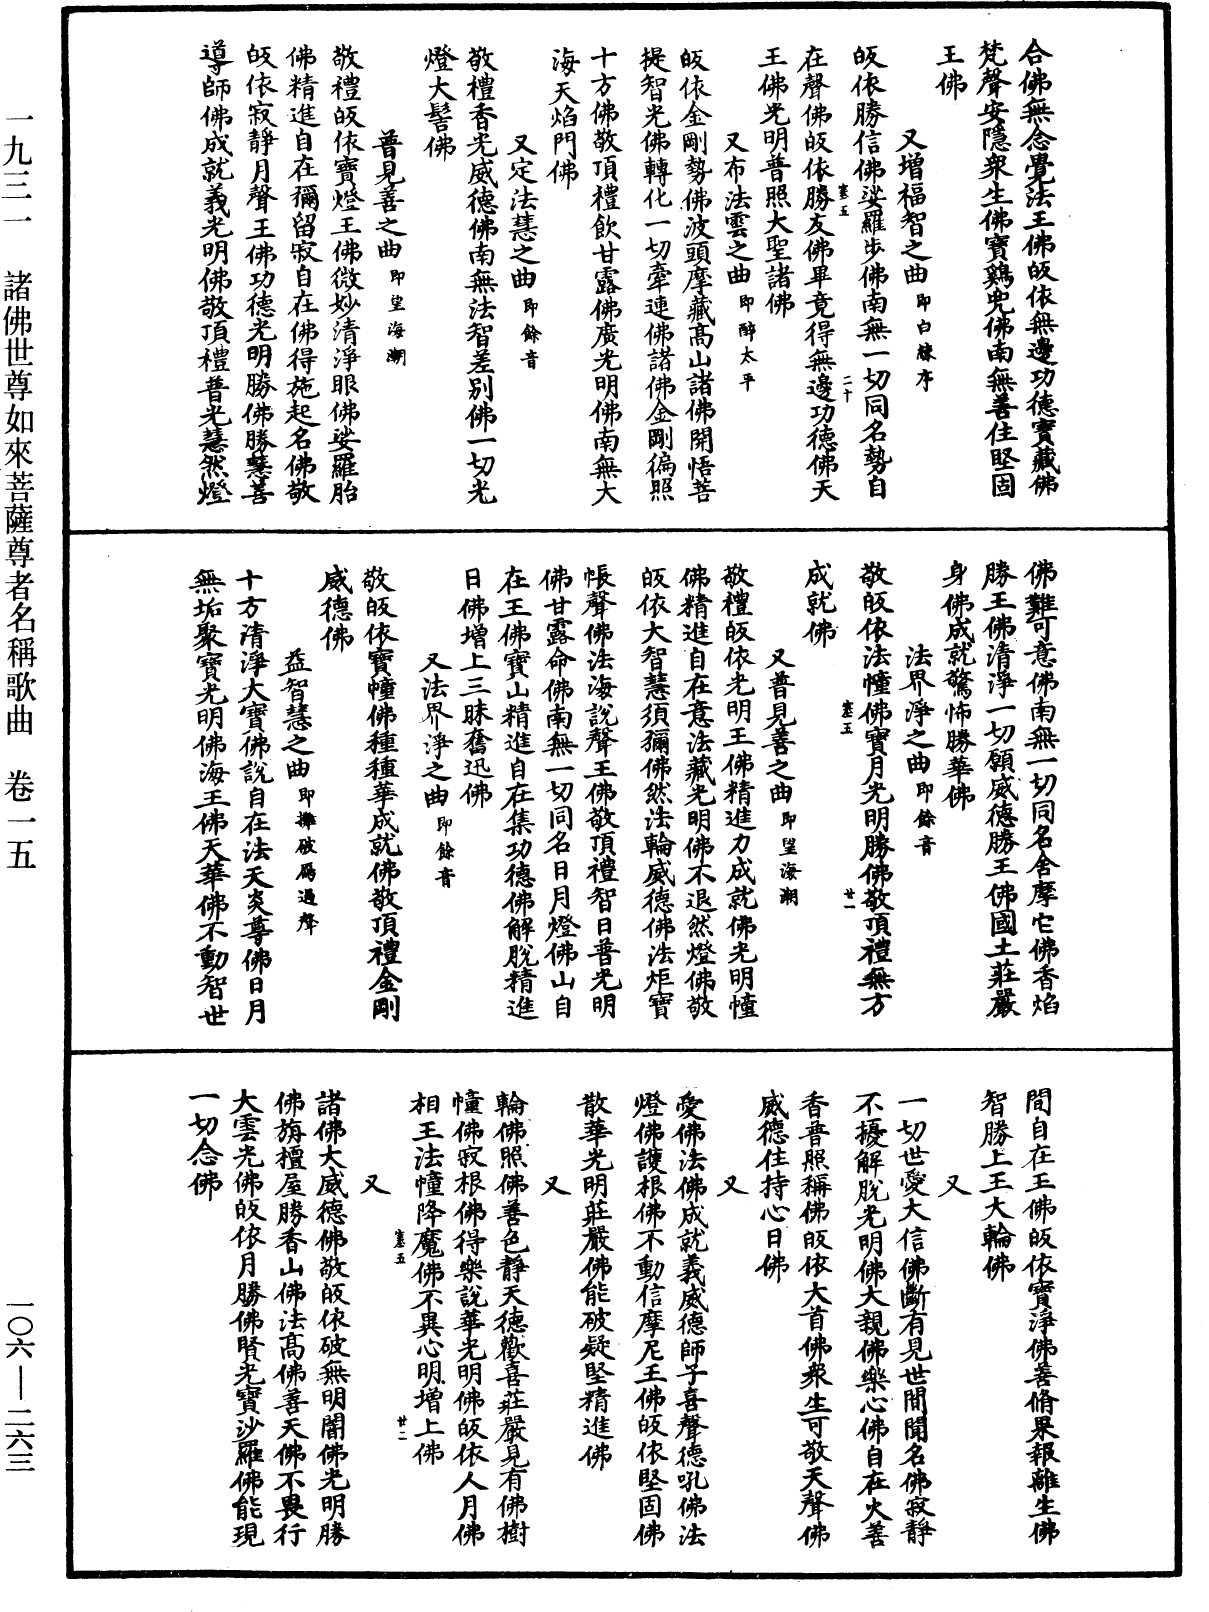 合佛無念覺法王佛皈依無邊功德寶藏佛
梵聲安隱衆生佛寶鷄兜佛南無善住堅固
王佛
又增福智之曲即白練序
皈依勝信佛娑羅步佛南無一切同名勢自
在聲佛皈依勝友佛畢竟得無邊功德佛天
王佛光明普照大聖諸佛
又布法雲之曲即醉太平
皈依金剛勢佛波頭摩藏高山諸佛開悟菩
提智光佛轉化一切牽連佛諸佛金剛徧照
十方佛敬頂禮飲甘露佛廣光明佛南無大
海天焰門佛
又定法慧之曲即餘音
敬禮香光威德佛南無法智差別佛一切光
燈大髻佛
普見善之曲即望海潮
敬禮皈依寶燈王佛微妙清淨眼佛娑羅胎
佛精進自在彌留寂自在佛得施起名佛敬
皈依寂靜月聲王佛功德光明勝佛勝慧善
導師佛成就義光明佛敬頂禮普光慧然燈
塞五
二十
佛難可意佛南無一切同名舍摩它佛香焰
勝王佛清淨一切願威德勝王佛國土莊嚴
身佛成就驚怖勝華佛
法界淨之曲即餘音
敬皈依法幢佛寶月光明勝佛敬頂禮無方
成就佛
又普見善之曲即望海潮
敬禮皈依光明王佛精進力成就佛光明幢
佛精進自在意法藏光明佛不退然燈佛敬
皈依大智慧須彌佛然法輪威德佛法炬寶
帳聲佛法海說聲王佛敬頂禮智日普光明
佛甘露命佛南無一切同名日月燈佛山自
在王佛寶山精進自在集功德佛解脫精進
日佛增上三昧奮迅佛
又法界淨之曲即餘音
敬皈依寶幢佛種種華成就佛敬頂禮金剛
威德佛
益智慧之曲即攤破鴈過聲
十方清淨大寶佛說自在法天炎尊佛日月
無垢聚寶光明佛海王佛天華佛不動智世
塞五
廿一
間自在王佛皈依寶淨佛善脩果報離生佛
智勝上王大輪佛
又
一切世愛大信佛斷有見世間聞名佛寂靜
不擾解脫光明佛大親佛樂心佛自在火善
香普照稱佛皈依大首佛衆生可敬天聲佛
威德住持心日佛
又
愛佛法佛成就義威德師子喜聲德吼佛法
燈佛護根佛不動信摩尼王佛皈依堅固佛
散華光明莊嚴佛能破疑堅精進佛
又
輪佛照佛善色靜天德歡喜莊嚴見有佛樹
幢佛寂根佛得樂說華光明佛皈依人月佛
相王法幢降魔佛不異心明增上佛
又
諸佛大威德佛敬皈依破無明闇佛光明勝
佛旃檀屋勝香山佛法高佛善天佛不畏行
大雲光佛皈依月勝佛賢光寶沙羅佛能現
一切念佛
塞五
廿二
一九三一　諸佛世尊如來菩薩尊者名稱歌曲　卷一五
一〇六—二六三